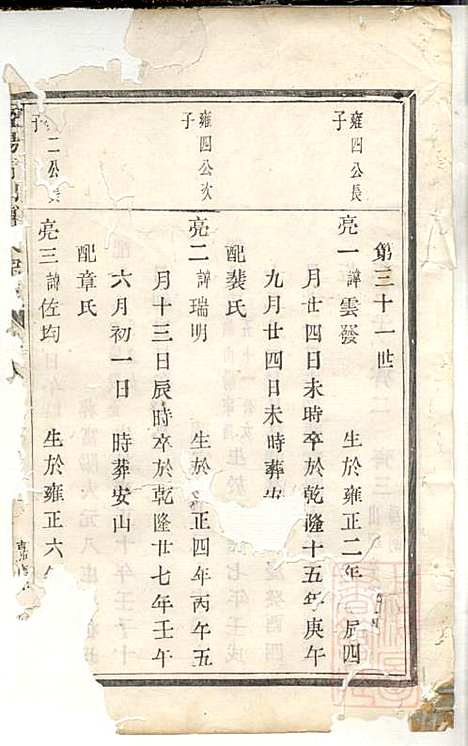 第三十一世
雍四公長
子
亮一諱雲發 生於雍正二年 辰四
月廿四日未時卒於乾隆十五年庚午
九月廿四日未時葬
配裴氏
雍四公次
子
亮二諱瑞明 生於 正四年丙午五
月十三日辰時卒於乾隆廿七年壬午
六月初一日 時葬安山
配章氏
二公長
子
亮三諱佐均 生於雍正六年